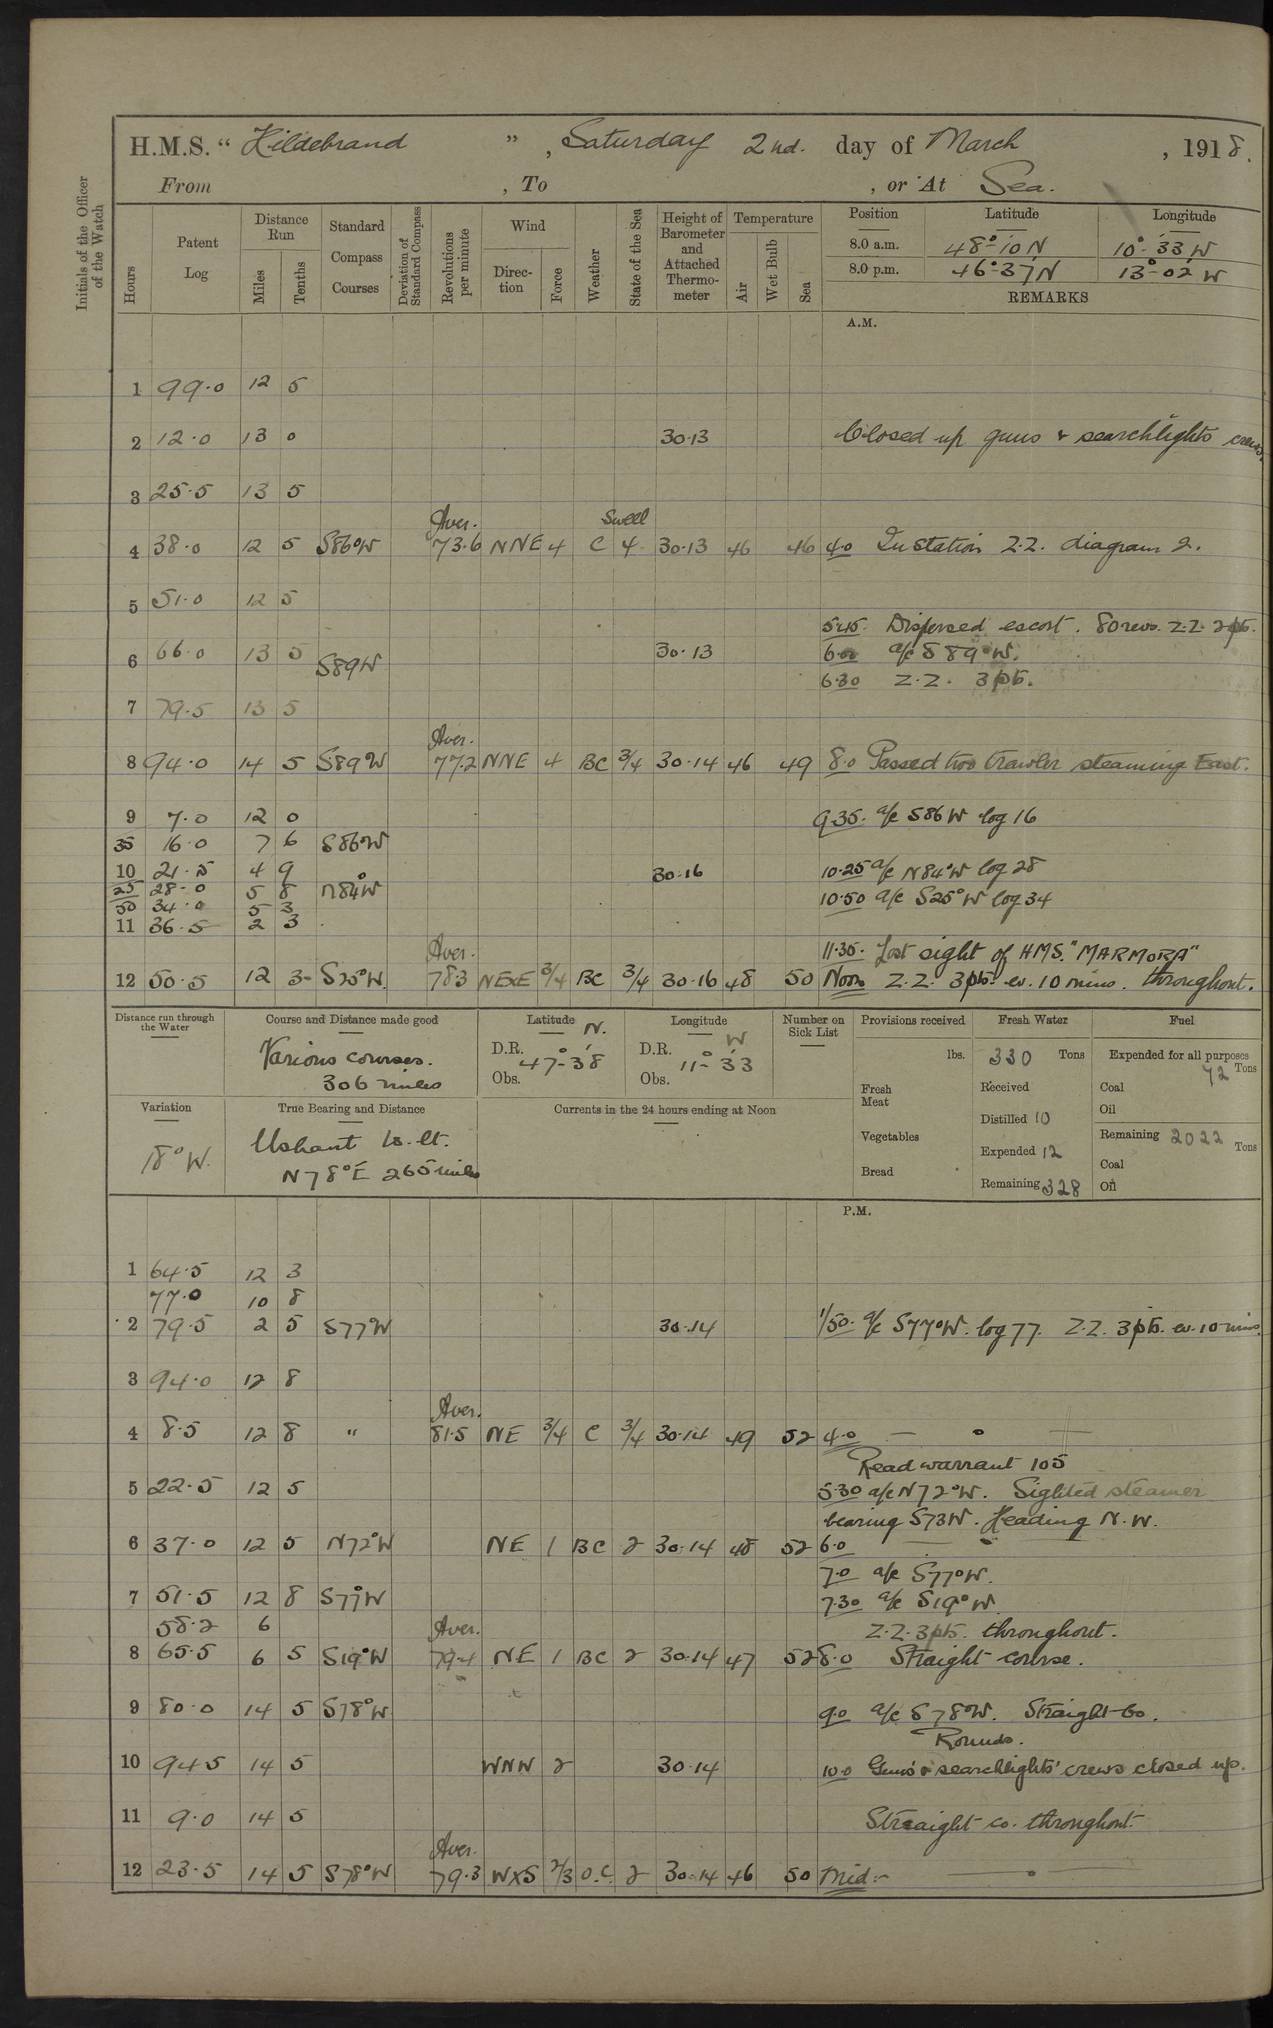 H.M.S. “ Hildebrand ” , Saturday 2nd. day of March , 1918.
From , To , or At Sea.
Initials of the Officer of the Watch
Hours Patent Log Distance Run Miles Tenths Standard Compass Courses Deviation of Standard Compass Revolutions per minute Wind Direc-tion Force Weather State of the Sea Height of Barometer and Attached Thermo-meter Temperature Air Wet Bulb Sea Position Latitude Longitude
8.0 a.m. 48°-10'N 10°-33'W
8.0 p.m. 46°-37'N 13°-02'W
REMARKS
A.M.
1 99.0 12 5
2 12.0 13 0 30.13 Closed up guns & searchlights crews.
3 25.5 13 5
Aver. Swell
4 38.0 12 5 S86°W 73.6 NNE 4 C 4 30.13 46 46 4.0 In station Z.Z. diagram 2.
5 51.0 12 5
5.45. Dispersed escort. 80 revs. Z.Z. 2pts.
6 66.0 13 5 S89W 30.13 6.00 a/c S89°W.
6.30 Z.Z. 3pts.
7 79.5 13 5
Aver.
8 94.0 14 5 S89W 77.2 NNE 4 BC 3/4 30.14 46 49 8.0 Passed two trawler steaming East.
9 7.0 12 0 9.35. a/c S86W log 16
35 16.0 7 6 S86°W
10 21.5 4 9 30.16 10.25 a/c N84°W log 28
25 28.0 5 8 N84°W
50 34.0 5 3 10.50 a/c S25°W log 34
11 36.5 2 3
Aver. 11.35. Lost sight of HMS. "MARMORA"
12 50.5 12 3 S25°W. 78.3 NExE 3/4 BC 3/4 30.16 48 50 Noon Z.Z. 3pts. ev. 10 mins. throughout.
Distance run through the Water Course and Distance made good Latitude N. Longitude W Number on Sick List Provisions received Fresh Water Fuel
Various courses. 306 miles
D.R. 47°-38' Obs.
D.R. 11°-33' Obs.
lbs.
Fresh Meat
Vegetables
Bread
330 Tons
Received
Distilled 10
Expended 12
Remaining 328
Expended for all purposes 72 Tons
Coal
Oil
Remaining 2022 Tons
Coal
Oil
Variation True Bearing and Distance Currents in the 24 hours ending at Noon
18°W. Ushant Is. lt.
N78°E 265 miles
P.M.
1 64.5 12 3
77.0 10 8
2 79.5 2 5 S77°W 30.14 1/50. a/c S77°W. log 77. Z.Z. 3pts. ev. 10 mins.
3 94.0 12 8
Aver.
4 8.5 12 8 " 81.5 NE 3/4 C 3/4 30.14 49 52 4.0
Read warrant 105
5 22.5 12 5 5.30 a/c N72°W. Sighted steamer
bearing S73W. Heading N.W.
6 37.0 12 5 N72°W NE 1 BC 2 30.14 48 52 6.0
7.0 a/c S77°W.
7 51.5 12 8 S77°W 7.30 a/c S19°W
58.2 6 Aver. Z.Z. 3pts. throughout.
8 65.5 6 5 S19°W 79.4 NE 1 BC 2 30.14 47 52 8.0 Straight course.
9 80.0 14 5 S78°W. 9.0 a/c S78°W. Straight Co.
Rounds.
10 94.5 14 5 WNW 2 30.14 10.0 Guns' & searchlights' crews closed up.
11 9.0 14 5 Straight co. throughout.
Aver.
12 23.5 14 5 S78°W 79.3 WXS 2/3 O.C. 2 30.14 46 50 Mid:-